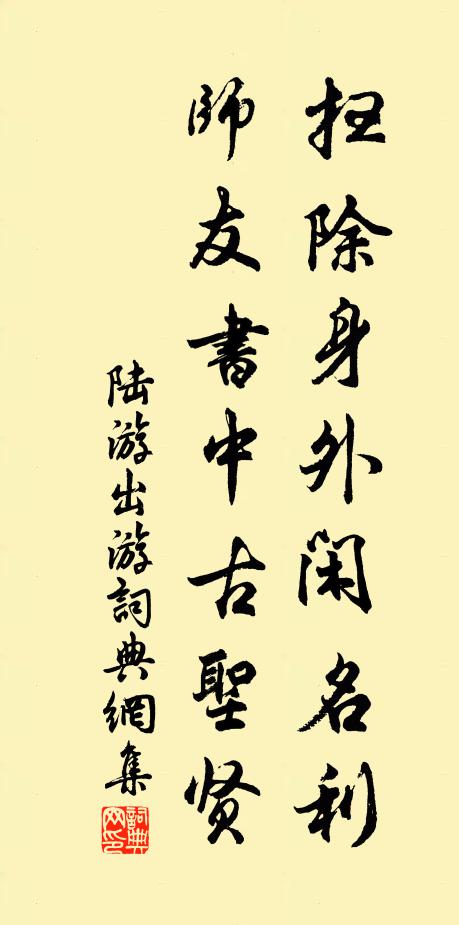 扫除身外闲名利
師友書中古聖贤
陆游出游詞典網集
詞典網印